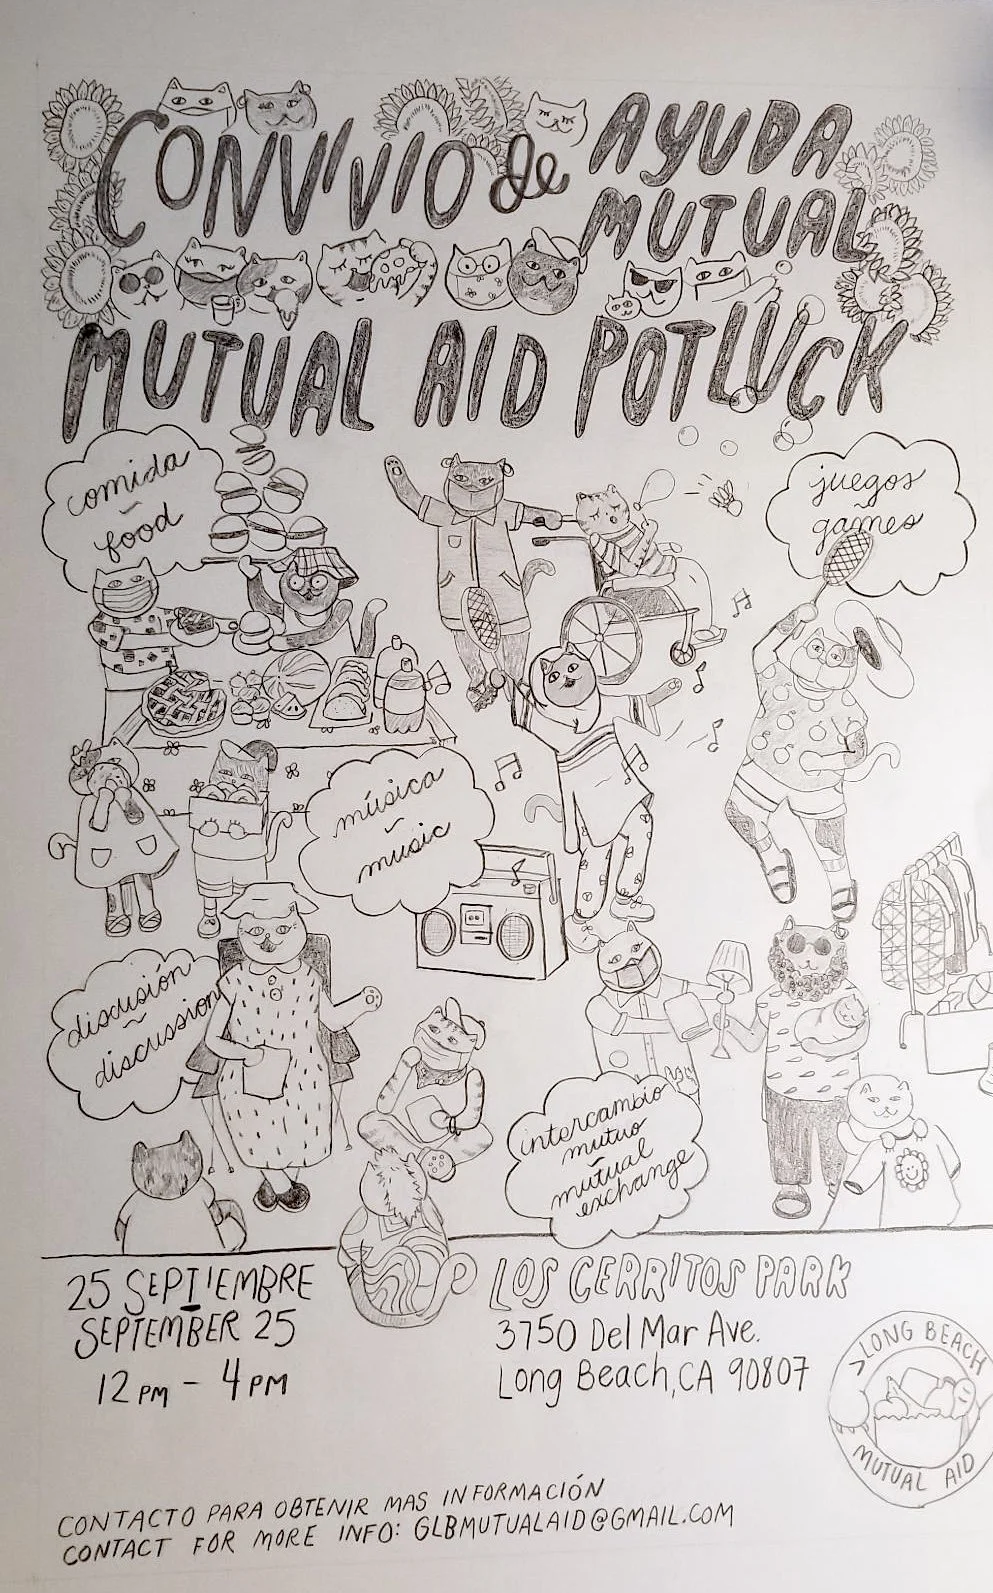 CONVIVIO de AYUDA
MUTUAL
MUTUAL AID POTLUCK
comida
~
food
juegos
~
games
música
~
music
discusión
~
discussion
intercambio
mutuo
~
mutual
exchange
25 SEPTIEMBRE
SEPTEMBER 25
12 PM - 4 PM
LOS CERRITOS PARK
3750 Del Mar Ave.
Long Beach, CA 90807
LONG BEACH
MUTUAL AID
CONTACTO PARA OBTENIR MAS INFORMACIÓN
CONTACT FOR MORE INFO: GLBMUTUALAID@GMAIL.COM